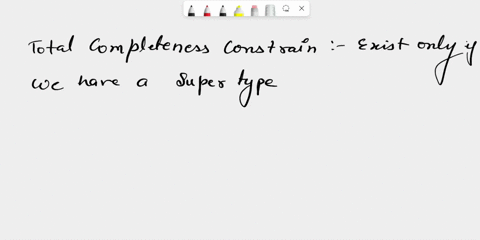 Total Completeness Constrain :- Exist only if
we have a Super type